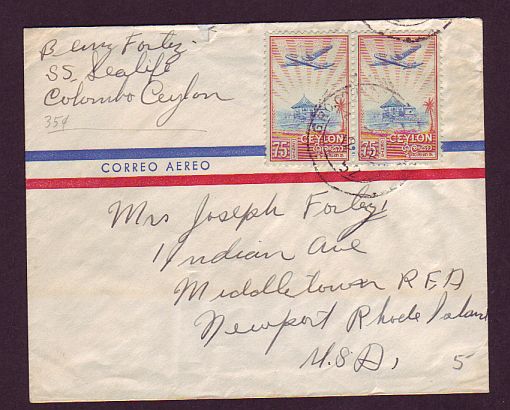 Benny Forley
SS. Sealift
Colombo Ceylon
35¢
75 CEYLON
75 CEYLON
CORREO AEREO
Mrs Joseph Forley
Indian Ave
Middletown R.F.D
Newport Rhode Island
U.S.A,
5